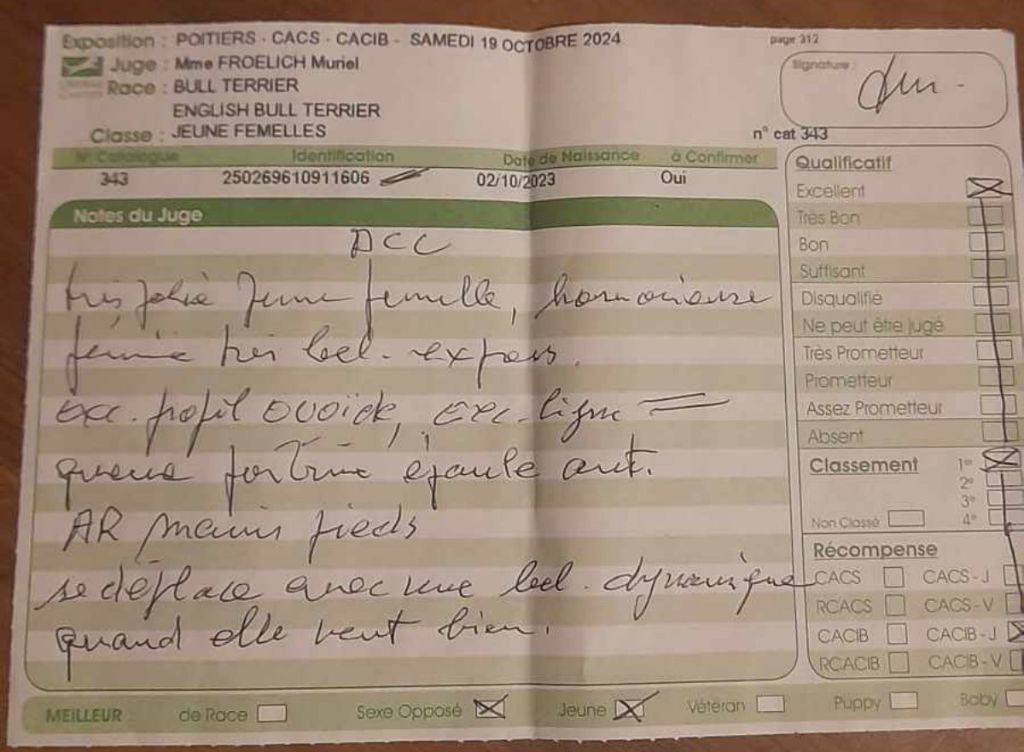 Exposition : POITIERS - CACS - CACIB - SAMEDI 19 OCTOBRE 2024
page 312
Juge : Mme FROELICH Muriel
Signature :
Race : BULL TERRIER
ENGLISH BULL TERRIER
Classe : JEUNE FEMELLES
n° cat 343
N° Catalogue Identification Date de Naissance à Confirmer
343 250269610911606 02/10/2023 Oui
Notes du Juge
très jolie jeune femelle, harmonieuse
très bel. express.
exc. profil ovoïde, exc. ligne
queue poitrine épaule ant.
AR mains pieds
se déplace avec une bel. dynamique
quand elle veut bien.
Qualificatif
Excellent
Très Bon
Bon
Suffisant
Disqualifié
Ne peut être jugé
Très Prometteur
Prometteur
Assez Prometteur
Absent
Classement 1°
2°
3°
Non Classé 4°
Récompense
CACS CACS - J
RCACS CACS - V
CACIB CACIB - J
RCACIB CACIB - V
MEILLEUR de Race Sexe Opposé Jeune Vétéran Puppy Baby